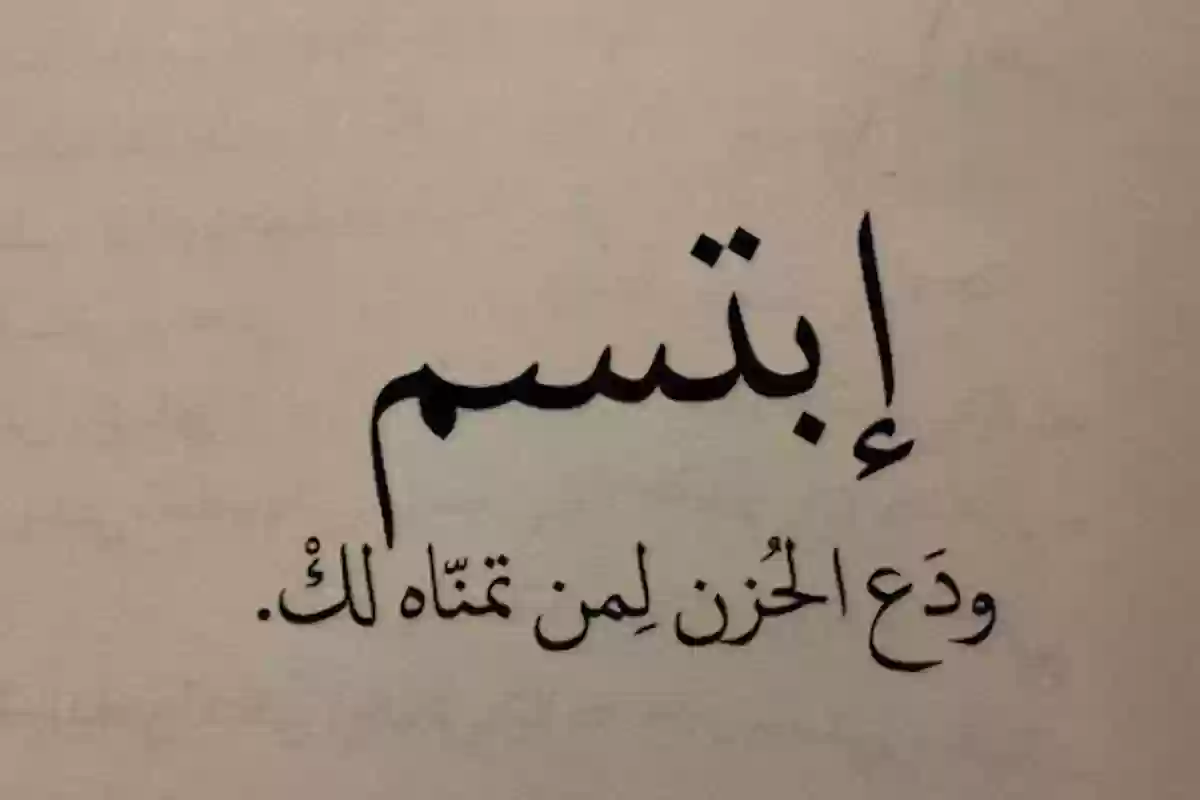 إبتسم
ودَع الحُزن لِمن تمنّاه لكْ.